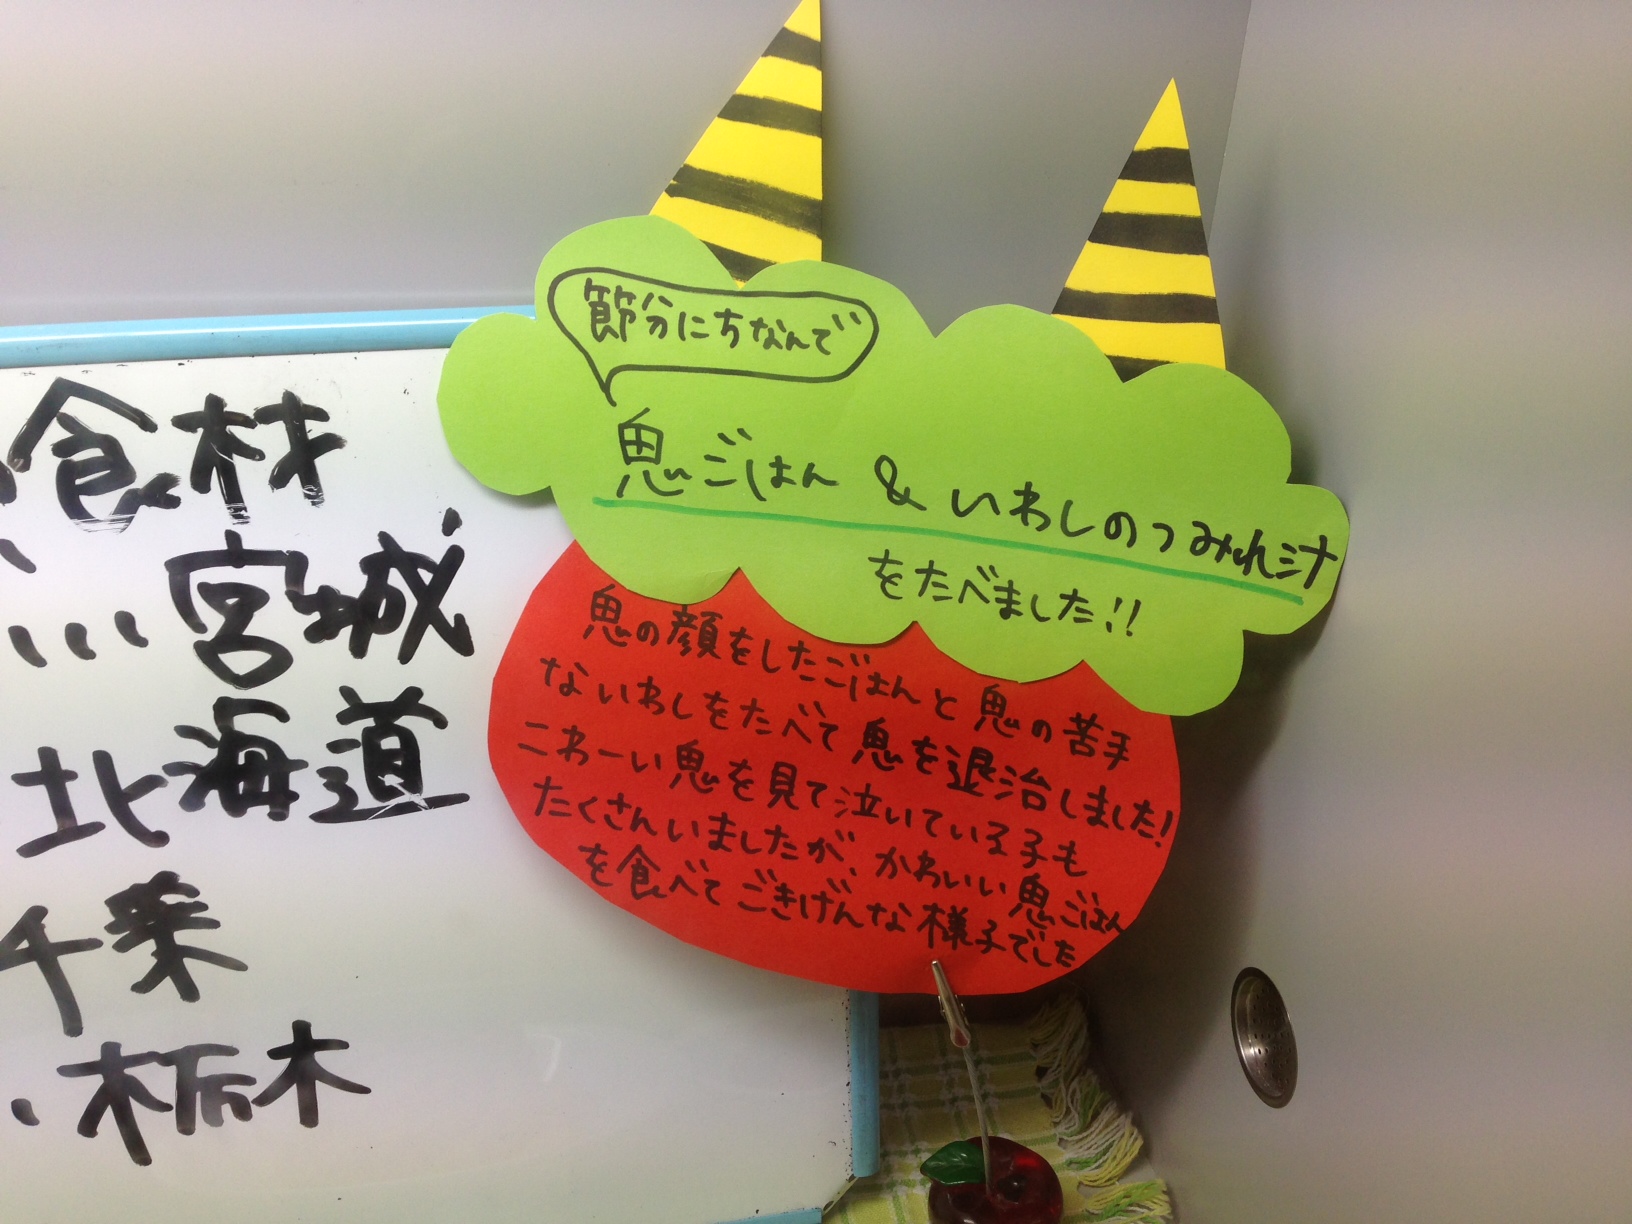 食材
宮城
北海道
千葉
栃木
節分にちなんで
鬼ごはん & いわしのつみれ汁
をたべました!!
鬼の顔をしたごはんと鬼の苦手
ないわしをたべて鬼を退治しました!
こわーい鬼を見て泣いている子も
たくさんいましたが、かわいい鬼ごはん
を食べてごきげんな様子でした